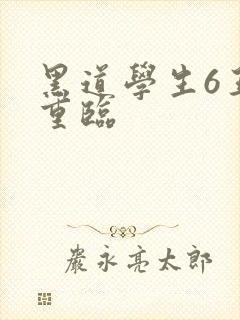 黑道學生6
重臨
嚴永亮太郎